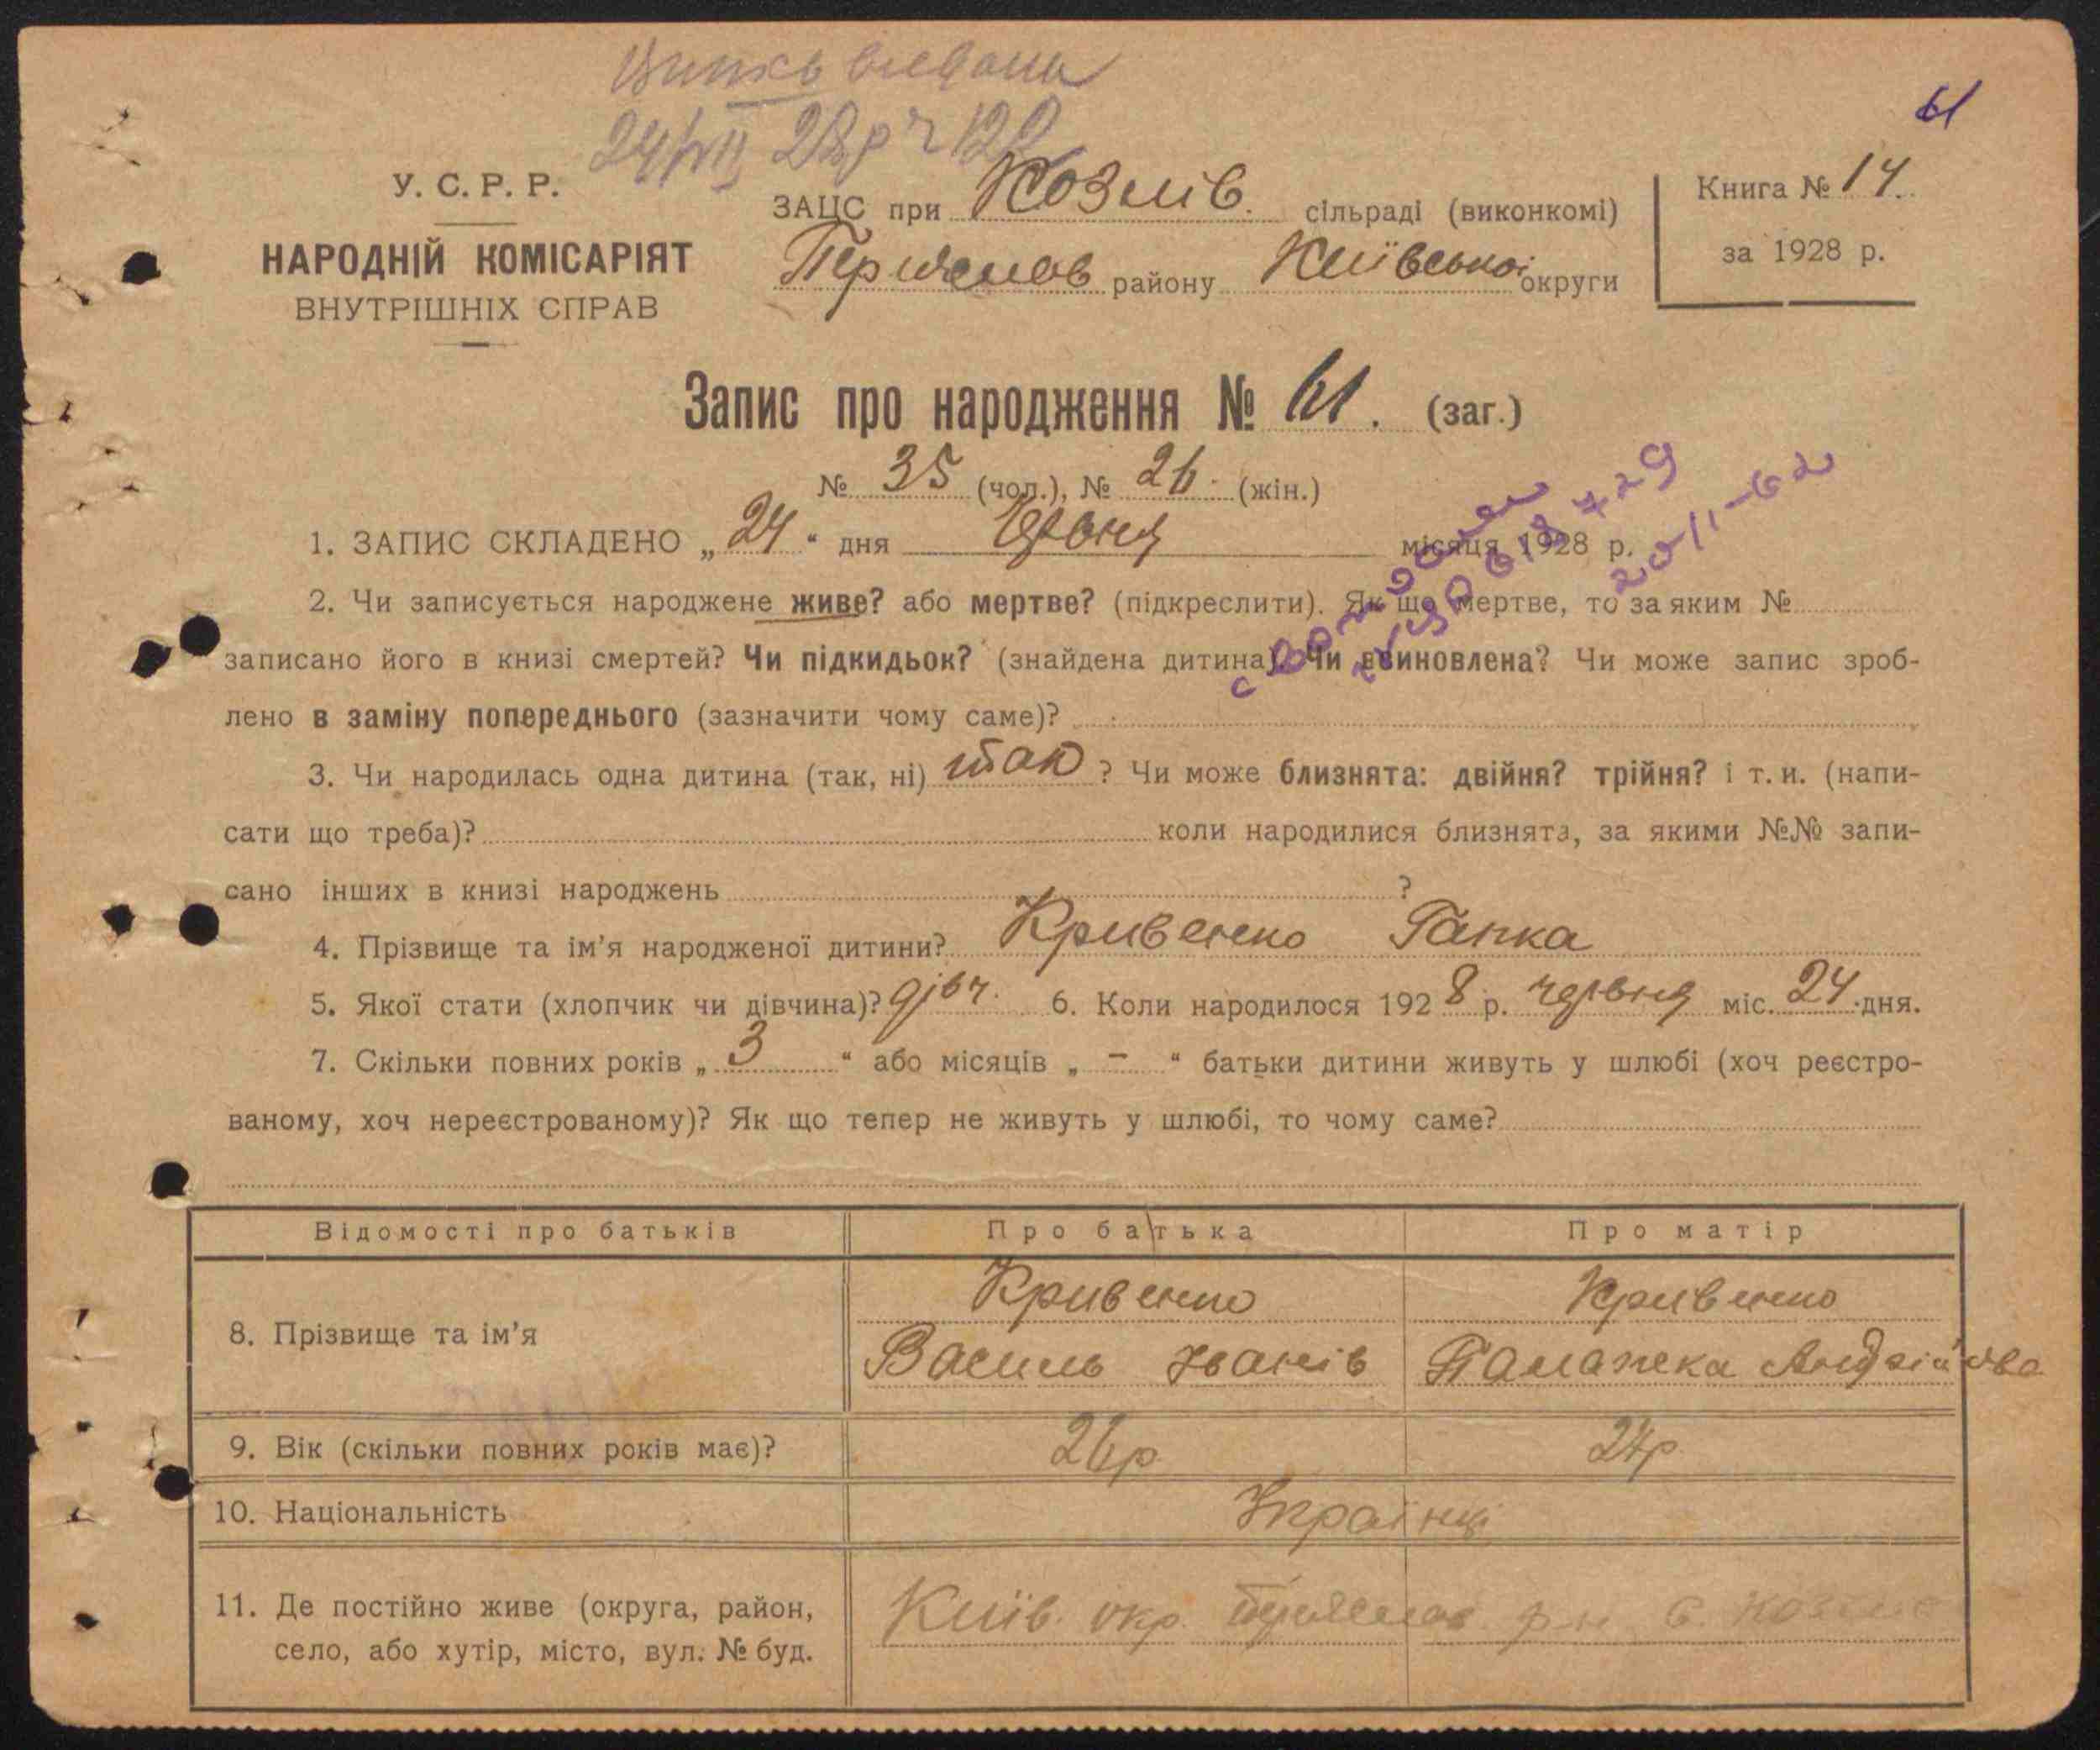 61
У. С. Р. Р.
НАРОДНІЙ КОМІСАРІЯТ
ВНУТРІШНІХ СПРАВ
ЗАЦС при Козлів. сільраді (виконкомі)
району Київської округи
Книга № 14.
за 1928 р.
Запис про народження № 61. (заг.)
№ 35 (чол.), № 26. (жін.)
1. ЗАПИС СКЛАДЕНО „ 24 “ дня червня місяця 1928 р.
20-11-62
2. Чи записується народжене живе? або мертве? (підкреслити). Як що мертве, то за яким №
записано його в книзі смертей? Чи підкидьок? (знайдена дитина). Чи всиновлена? Чи може запис зроб-
лено в заміну попереднього (зазначити чому саме)?
3. Чи народилась одна дитина (так, ні) так ? Чи може близнята: двійня? трійня? і т. и. (напи-
сати що треба)? коли народилися близнята, за якими №№ запи-
сано інших в книзі народжень ?
4. Прізвище та ім’я народженої дитини? Кривенко Гапка
5. Якої стати (хлопчик чи дівчина)? дівч. 6. Коли народилося 1928 р. червня міс. 24 дня.
7. Скільки повних років „ 3 “ або місяців „ – “ батьки дитини живуть у шлюбі (хоч реєстро-
ваному, хоч нереєстрованому)? Як що тепер не живуть у шлюбі, то чому саме?
Відомості про батьків Про батька Про матір
8. Прізвище та ім’я Кривенко Кривенко
Василь Іванів Палажка Андріївна
9. Вік (скільки повних років має)? 26р. 24р.
10. Національність Українці
11. Де постійно живе (округа, район, Київ. окр. р-н с. Козлів
село, або хутір, місто, вул. № буд.